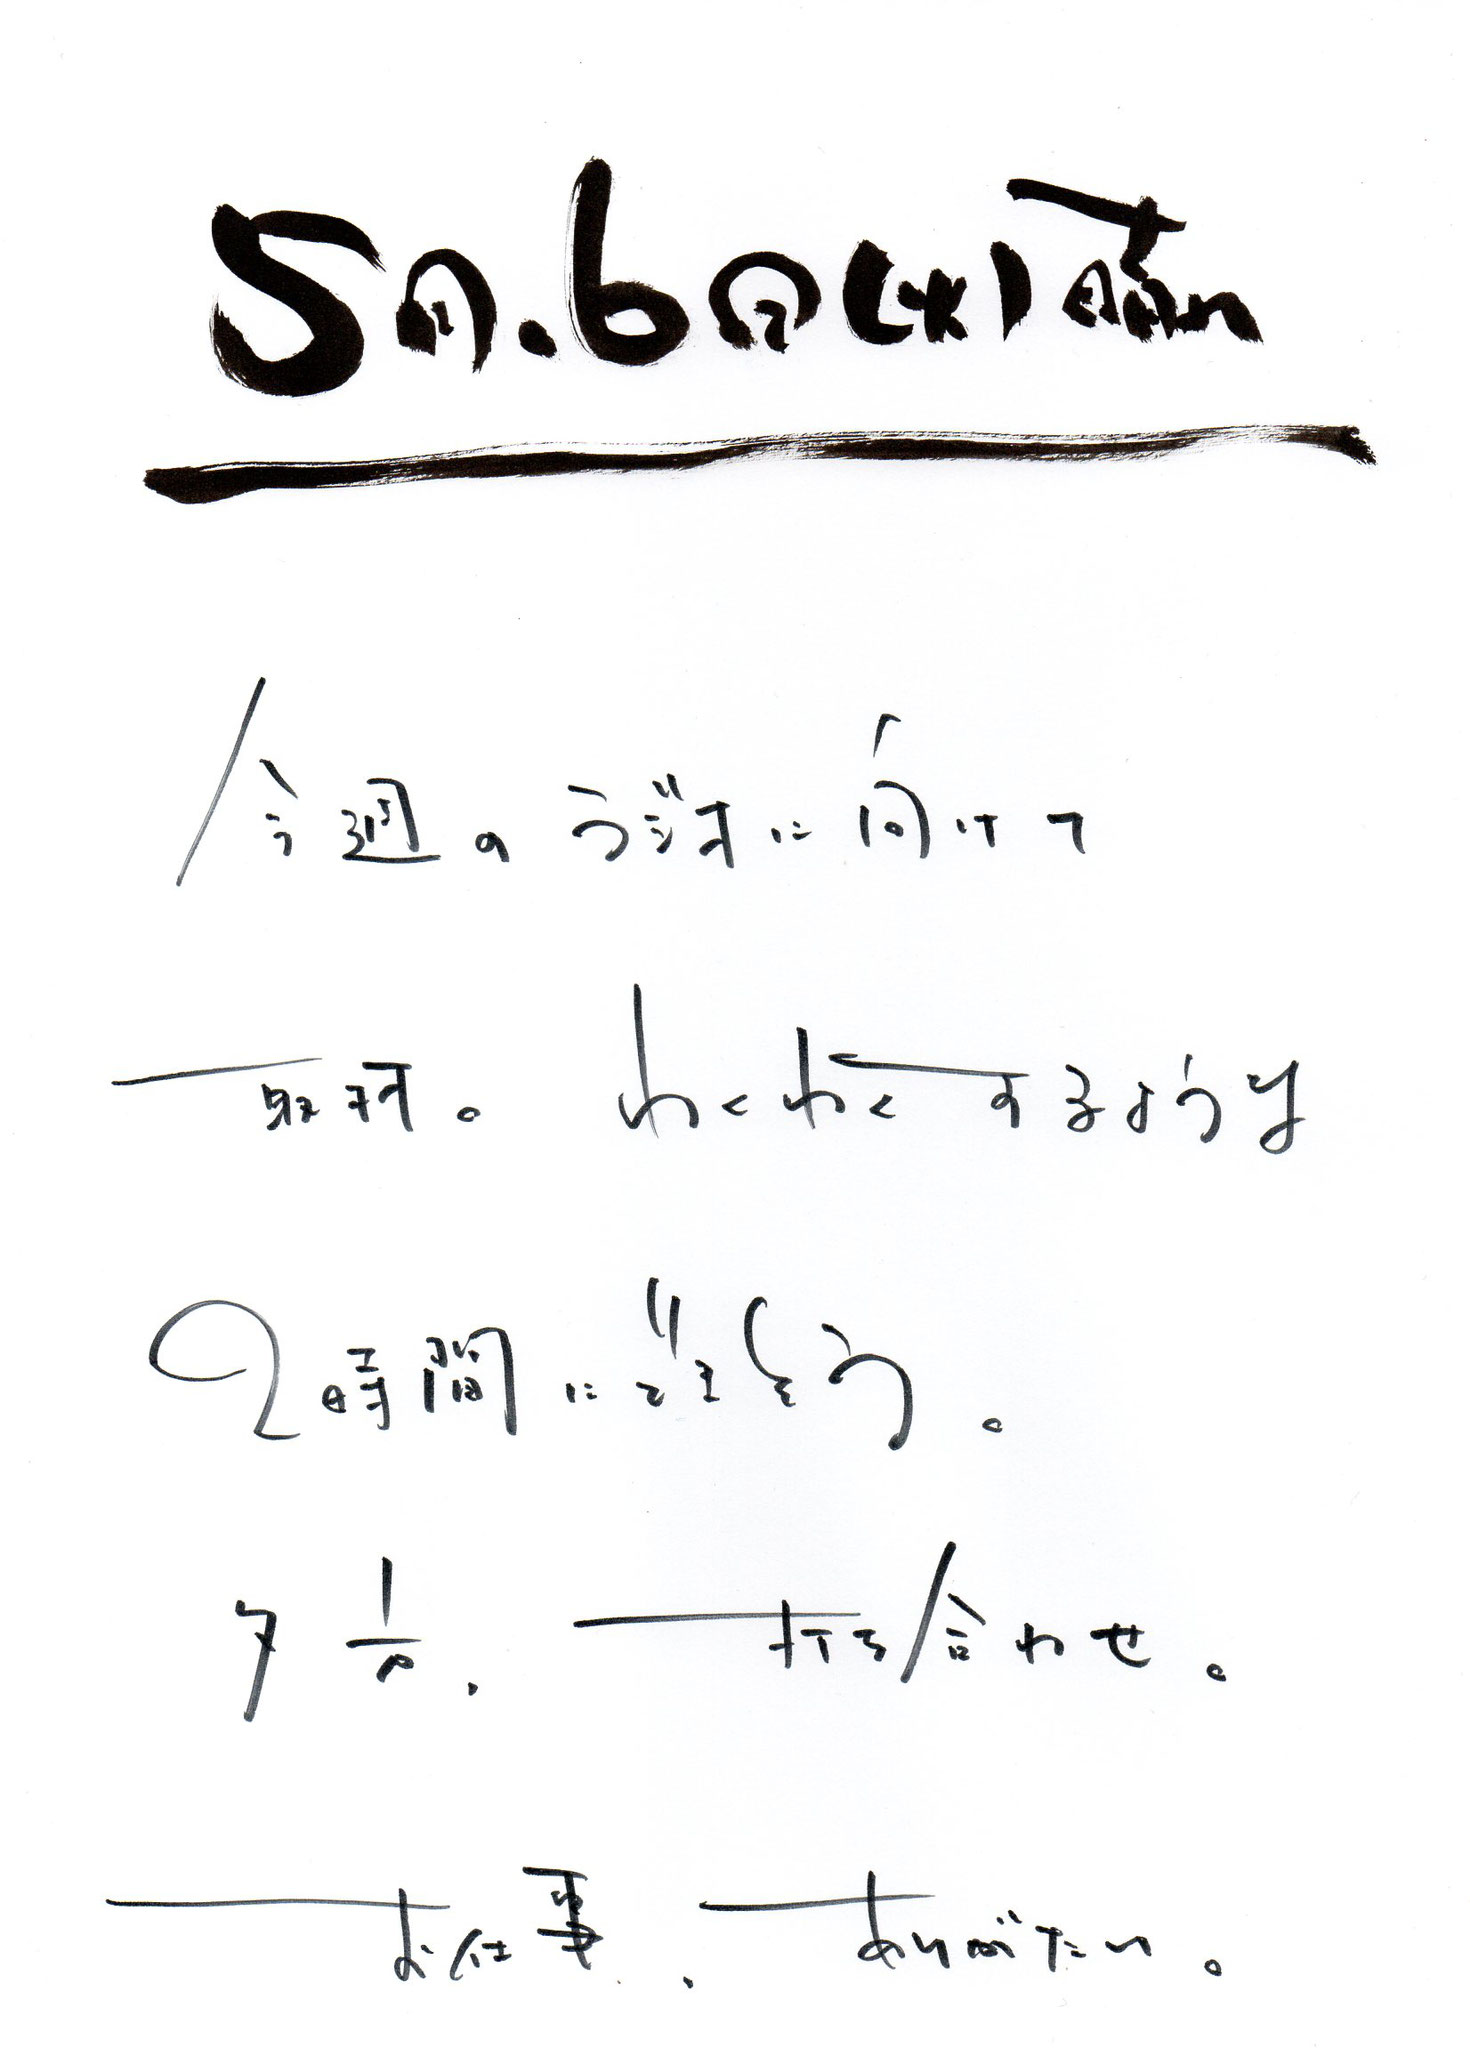 5月.6日(水)
今週のラジオに向けて
取材。わくわくするような
2時間にできそう。
夕方、打ち合わせ。
お仕事、ありがたい。